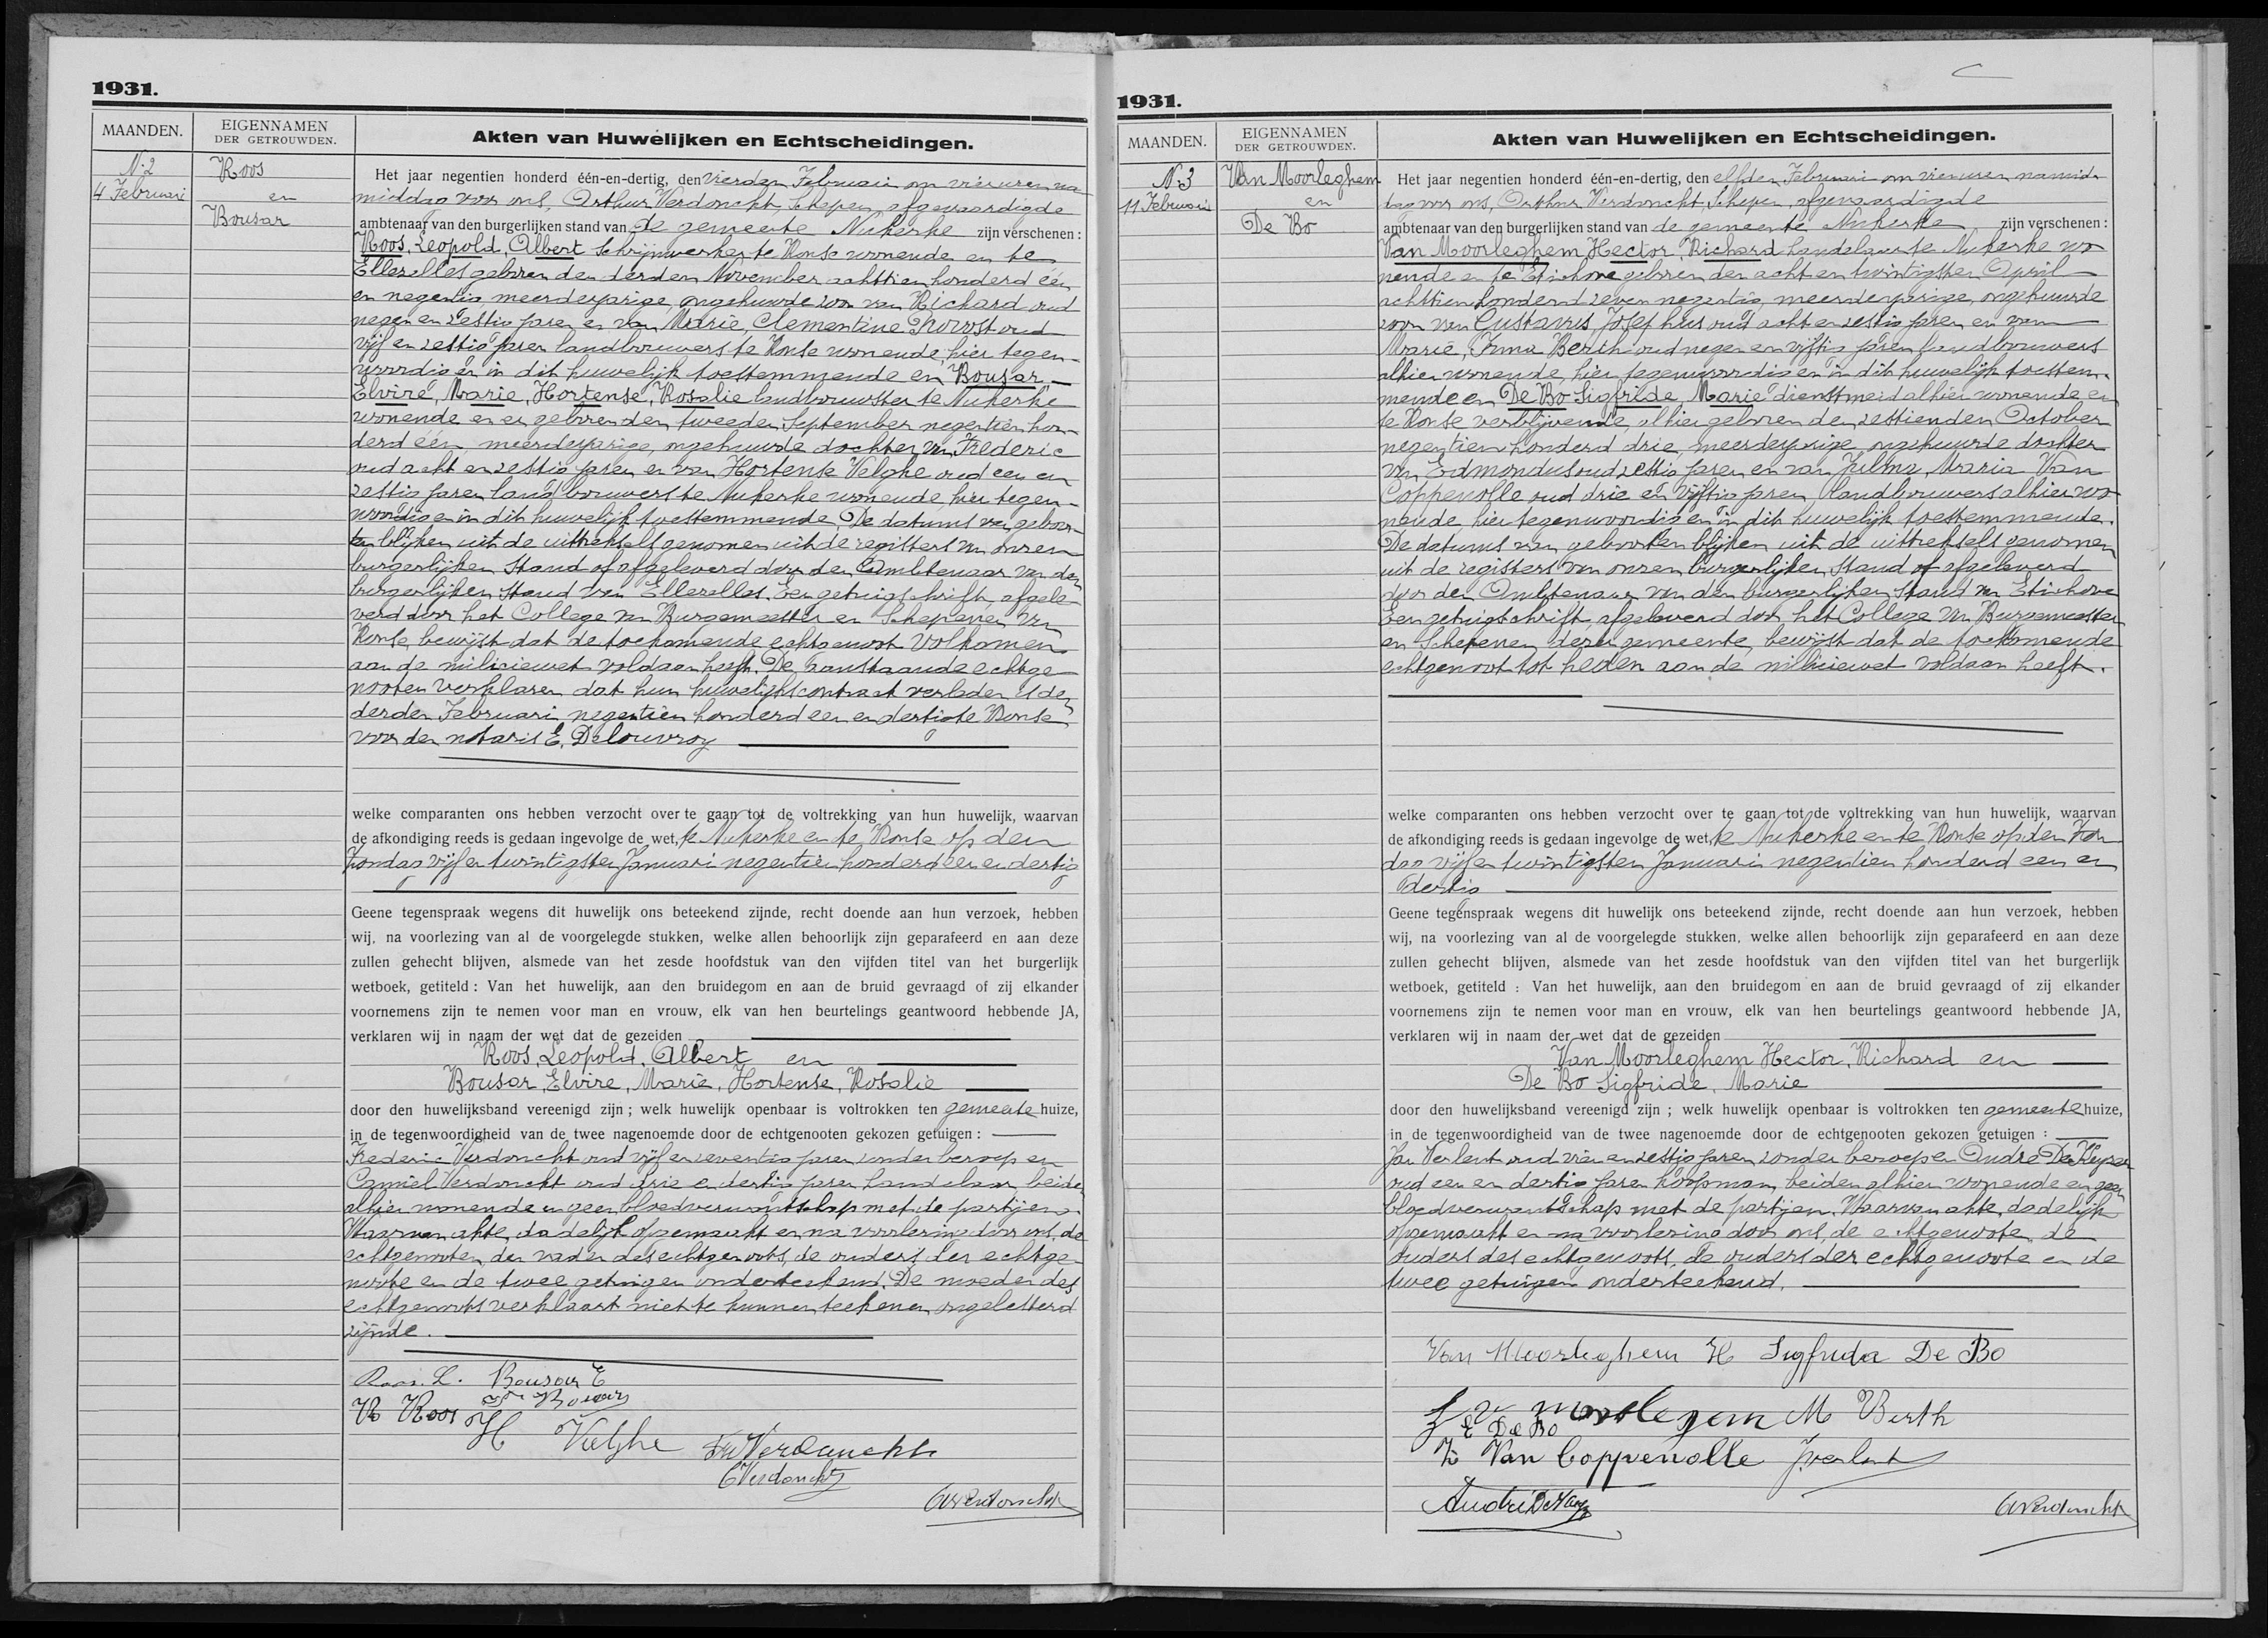 1931.
MAANDEN.
EIGENNAMEN
DER GETROUWDEN.
Akten van Huwelijken en Echtscheidingen.
N. 2
4 Februari
Roos
en
Bousar
Het jaar negentien honderd één-en-dertig, den vierden Februari om vier uren na
middag voor ons, Arthur Verdonckt, Schepen, afgevaardigde
ambtenaar van den burgerlijken stand van de gemeente Nukerke zijn verschenen :
Roos, Leopold, Albert Schrijnwerker te Ronse wonende en te
Ellezelles geboren den derden November achttien honderd één
en negentig meerderjarige, ongehuwde zoon van Richard oud
negen en zestig jaren en van Marie, Clementine Provost oud
vijf en zestig jaren landbouwers te Ronse wonende, hier tegen-
woordig en in dit huwelijk toestemmende en Bousar
Elvire, Marie, Hortense, Rosalie landbouwster te Nukerke
wonende en er geboren den tweeden September negentien hon-
derd één, meerderjarige, ongehuwde dochter van Frederic
oud acht en zestig jaren en van Hortense Velghe oud een en
zestig jaren landbouwers te Nukerke wonende, hier tegen-
woordig en in dit huwelijk toestemmende. De datums van geboor-
ten blijken uit de uittreksels genomen uit de registers van onzen
burgerlijken stand of afgeleverd door den Ambtenaar van den
burgerlijken stand van Ellezelles. Een getuigschrift, afgele-
verd door het College van Burgemeester en Schepenen van
Ronse, bewijst dat de toekomende echtgenoot volkomen
aan de miliciewet voldaan heeft. De aanstaande echtge-
nooten verklaren dat hun huwelijkscontract verleden is den
derden Februari negentien honderd een en dertig te Ronse
voor den notaris E. Delouvroy
welke comparanten ons hebben verzocht over te gaan tot de voltrekking van hun huwelijk, waarvan
de afkondiging reeds is gedaan ingevolge de wet, te Nukerke en te Ronse op den
Zondag vijf en twintigsten Januari negentien honderd een en dertig
Geene tegenspraak wegens dit huwelijk ons beteekend zijnde, recht doende aan hun verzoek, hebben
wij, na voorlezing van al de voorgelegde stukken, welke allen behoorlijk zijn geparafeerd en aan deze
zullen gehecht blijven, alsmede van het zesde hoofdstuk van den vijfden titel van het burgerlijk
wetboek, getiteld : Van het huwelijk, aan den bruidegom en aan de bruid gevraagd of zij elkander
voornemens zijn te nemen voor man en vrouw, elk van hen beurtelings geantwoord hebbende JA,
verklaren wij in naam der wet dat de gezeiden
Roos, Leopold, Albert en
Bousar, Elvire, Marie, Hortense, Rosalie
door den huwelijksband vereenigd zijn ; welk huwelijk openbaar is voltrokken ten gemeente huize,
in de tegenwoordigheid van de twee nagenoemde door de echtgenooten gekozen getuigen :
Frederic Verdonckt oud vijf en zeventig jaren zonder beroep en
Camiel Verdonckt oud drie en dertig jaren handelaar, beiden
alhier wonende en geen bloedverwantschap met de partijen.
Waarvan akte, dadelijk opgemaakt en na voorlezing door ons, de
echtgenooten, den vader des echtgenoots, de ouders der echtge-
noote en de twee getuigen onderteekend. De moeder des
echtgenoots verklaart niet te kunnen teekenen, ongeletterd
zijnde.
Roos. L. Bousar E
R Roos Bousar
H Velghe Fr Verdonckt
C Verdonckt
A Verdonckt
1931.
MAANDEN.
EIGENNAMEN
DER GETROUWDEN.
Akten van Huwelijken en Echtscheidingen.
N. 3
11 Februari
Van Moorleghem
en
De Bo
Het jaar negentien honderd één-en-dertig, den elfden Februari om vier uren namid-
dag voor ons, Arthur Verdonckt, Schepen, afgevaardigde
ambtenaar van den burgerlijken stand van de gemeente Nukerke zijn verschenen :
Van Moorleghem Hector, Richard handelaar te Nukerke wo
nende en te Etichove geboren den acht en twintigsten April
achttien honderd zeven negentig, meerderjarige, ongehuwde
zoon van Gustavus, Josephus oud acht en zestig jaren en van
Marie, Irma Berth oud negen en vijftig jaren landbouwers
alhier wonende, hier tegenwoordig en in dit huwelijk toestem-
mende en De Bo Sigfride, Marie dienstmeid alhier wonende en
te Ronse verblijvende, alhier geboren den zestienden October
negentien honderd drie, meerderjarige, ongehuwde dochter
van Edmondus oud zestig jaren en van Zulma, Maria Van
Coppenolle oud drie en vijftig jaren, landbouwers alhier wo-
nende, hier tegenwoordig en in dit huwelijk toestemmende.
De datums van geboorten blijken uit de uittreksels genomen
uit de registers van onzen burgerlijken stand of afgeleverd
door den Ambtenaar van den burgerlijken stand van Etichove
Een getuigschrift, afgeleverd door het College van Burgemeester
en Schepenen dezer gemeente, bewijst dat de toekomende
echtgenoot tot heden aan de miliciewet voldaan heeft.
welke comparanten ons hebben verzocht over te gaan tot de voltrekking van hun huwelijk, waarvan
de afkondiging reeds is gedaan ingevolge de wet, te Nukerke en te Ronse op den Zon
dag vijf en twintigsten Januari negentien honderd een en
dertig
Geene tegenspraak wegens dit huwelijk ons beteekend zijnde, recht doende aan hun verzoek, hebben
wij, na voorlezing van al de voorgelegde stukken, welke allen behoorlijk zijn geparafeerd en aan deze
zullen gehecht blijven, alsmede van het zesde hoofdstuk van den vijfden titel van het burgerlijk
wetboek, getiteld : Van het huwelijk, aan den bruidegom en aan de bruid gevraagd of zij elkander
voornemens zijn te nemen voor man en vrouw, elk van hen beurtelings geantwoord hebbende JA,
verklaren wij in naam der wet dat de gezeiden
Van Moorleghem Hector, Richard en
De Bo Sigfride, Marie
door den huwelijksband vereenigd zijn ; welk huwelijk openbaar is voltrokken ten gemeente huize,
in de tegenwoordigheid van de twee nagenoemde door de echtgenooten gekozen getuigen :
Jan Verlent oud vier en zestig jaren zonder beroep en André De Keyser
oud een en dertig jaren koopman, beiden alhier wonende en geen
bloedverwantschap met de partijen. Waarvan akte, dadelijk
opgemaakt en na voorlezing door ons, de echtgenoote, de
ouders des echtgenoots, de ouders der echtgenoote en de
twee getuigen onderteekend.
Van Moorleghem H Sigfrida De Bo
moorlegem M Berth
E De Bo
Z Van Coppenolle J verlent
André
A Verdonckt